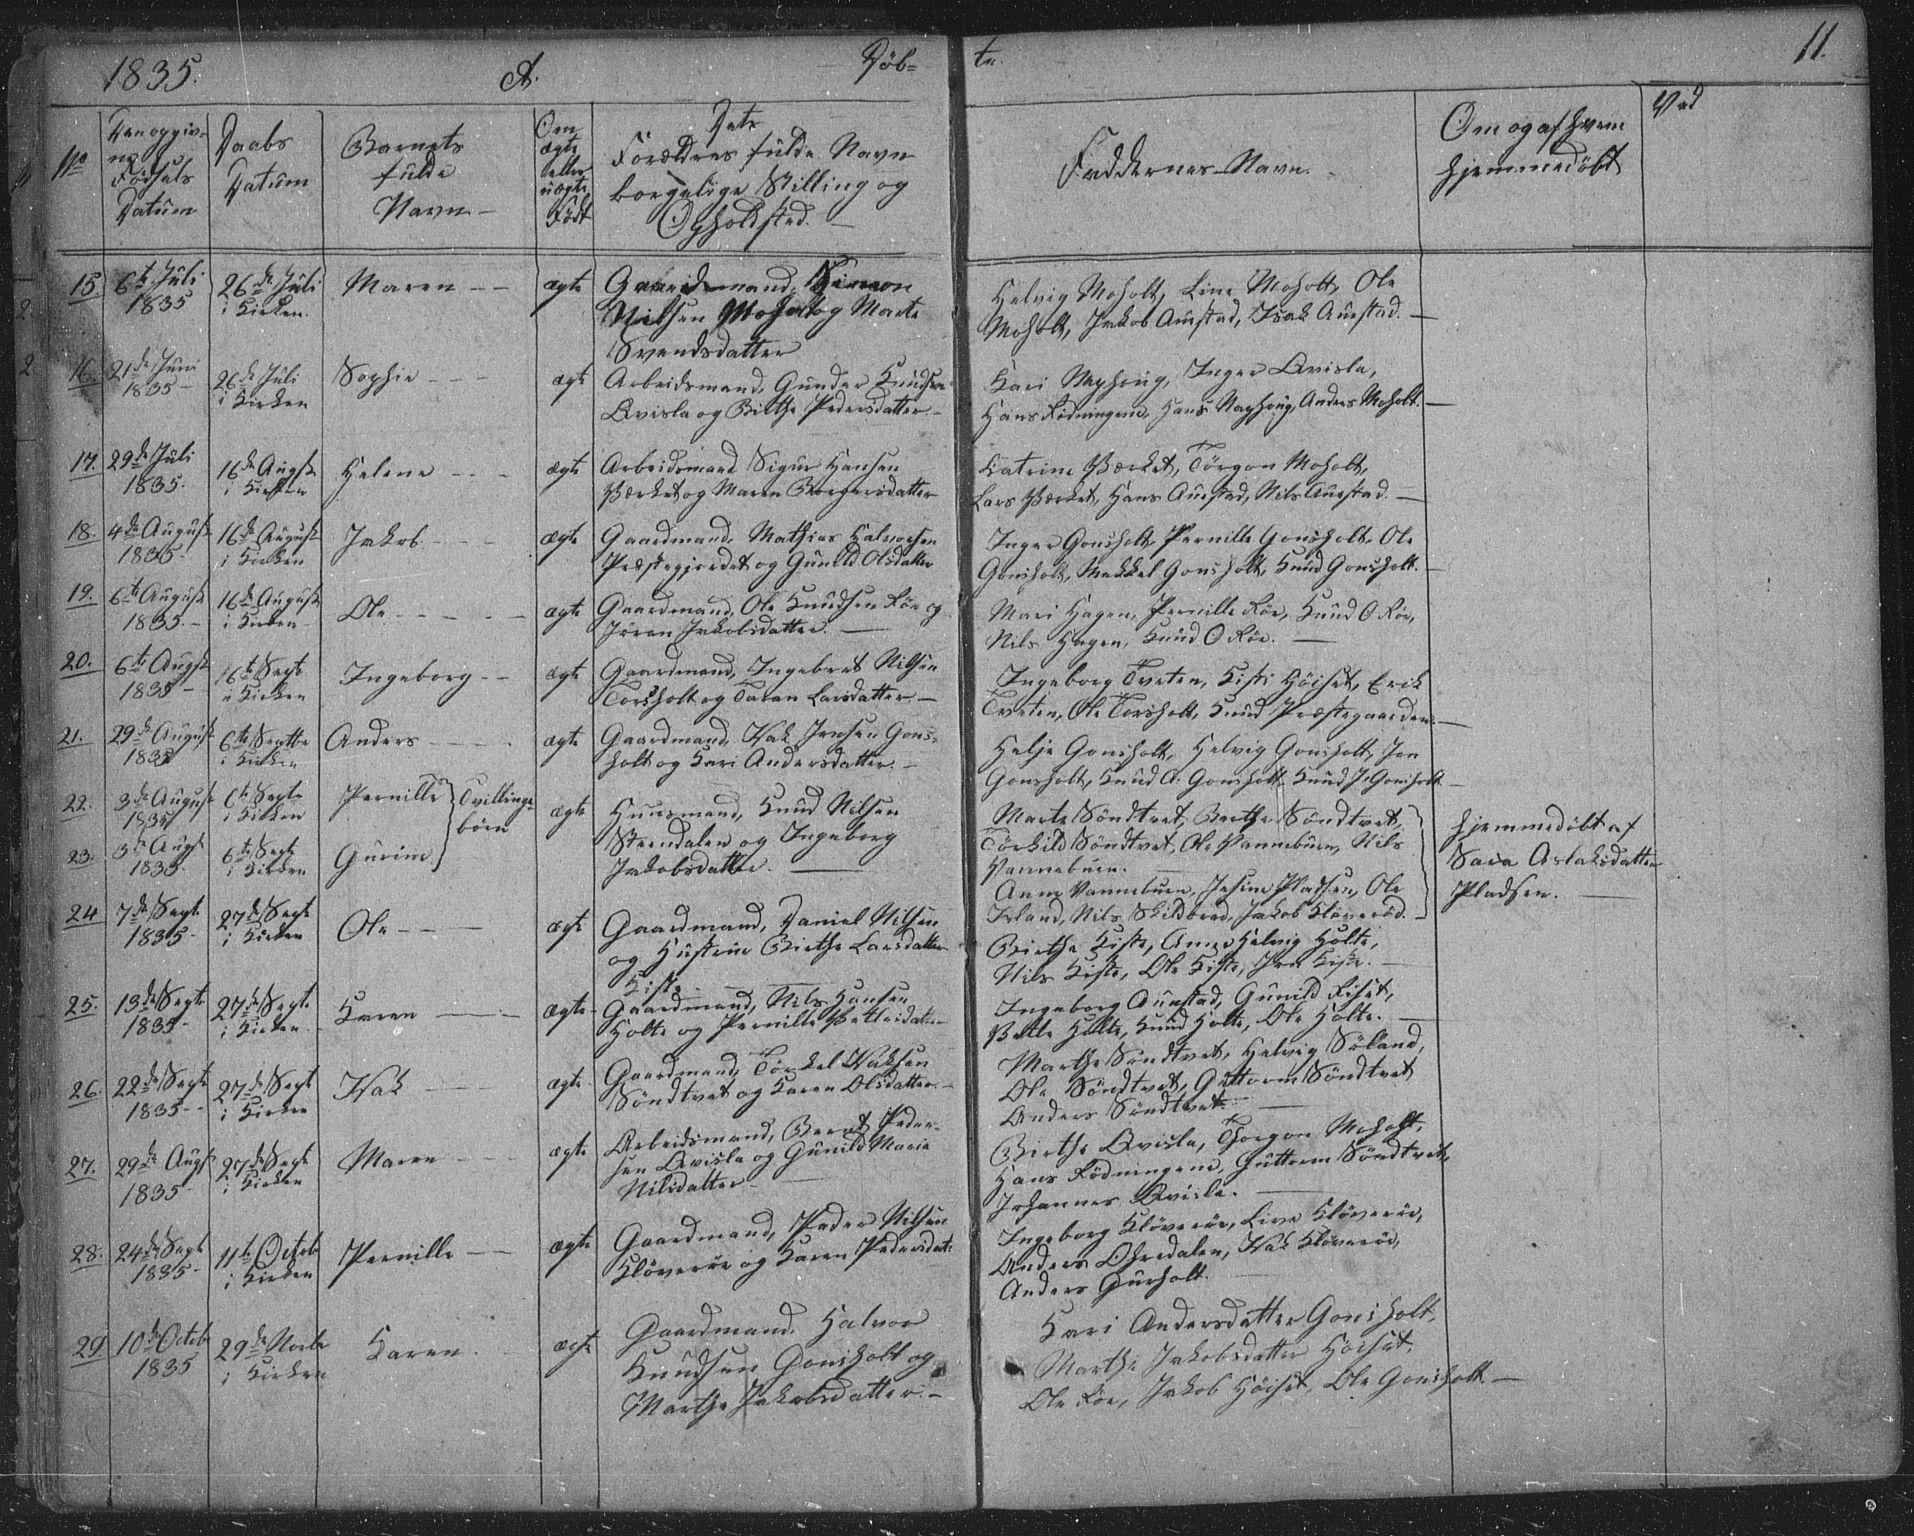 1835.
A.
Døb-
te.
11.
No
Den opgiv-
ne
Fødsels
Datum
Daabs
Datum
Barnets
fulde
Navn
Om
ægte
eller
uægte
Født
Dets
Forældres fulde Navn
borgelige Stilling og
Opholdsted.
Faddernes Navn.
Om og af hvem
hjemmedøbt
15. 6te Juli 1835
26de Juli i Kirken.
Maren
ægte
Gaardmand, Simon
Nilsen Moholt og Marte
Svendsdatter
Helvig Moholt, Line Moholt, Ole
Moholt, Jakob Auestad, Isak Auestad.
16. 21de Juni 1835
26de Juli i Kirken
Sophie
ægte
Arbeidsmand, Gunder Knudsen
Qvisla og Birthe Pedersdatter
Kari Naphoug, Inger Qvisla,
Hans Rødningene, Hans Naphoug, Anders Moholt.
17. 29de Juli 1835.
16de Augst i Kirken
Helene
ægte
Arbeidsmand Sigur Hansen
Værket og Maren Borgersdatter
Katrine Værket, Törgon Moholt,
Lars Værket, Hans Auestad, Nils Auestad.
18. 4de August 1835
16de August i Kirken
Jakob
ægte
Gaardmand, Mathias Halvorsen
Præstegjordet og Gunild Olsdatter
Inger Gonsholt, Pernille Gonsholt, Ole
Gonsholt, Mekkel Gonsholt, Knud Gonsholt.
19. 6te August 1835.
16de August i Kirken
Ole
ægte
Gaardmand, Ole Knudsen Röe og
Jören Jakobsdatter.
Mari Hagen, Pernille Röe, Knud O Röe,
Nils Hagen, Knud O Röe.
20. 6te Augst 1835
16te Sept i Kirken
Ingeborg
ægte
Gaardmand, Ingebret Nilsen
Torsholt og Taran Larsdatter
Ingeborg Tveten, Kisti Höiset, Erik
Tveten, Ole Torsholt, Knud Præstegaarden.
21. 29de August 1835
6te Septbr i Kirken
Anders
ægte
Gaardmand, Isak Jensen Gons-
holt og Kari Andersdatter.
Helje Gonsholt, Helvig Gonsholt, Jen
Gonsholt, Knud A. Gonsholt, Knud J. Gonsholt
22. 3de August 1835
6te Sept. i Kirken
Pernille
Tvillinge
börn
ægte
Huusmand, Knud Nilsen
Steendalen og Ingeborg
Jakobsdatter.
Marte Söndtvet, Berthe Söndtvet,
Törkild Söndtvet, Ole Vannebuen, Nils
Vannebuen.
hjemmedöbt af
Sara Aslaksdatter
Pladsen.
23. 3de Augst 1835.
6te Sept i Kirken
Gurine
Anne Vannebuen, Josine Pladsen, Ole
Island, Nils Skildbred, Jakob Kløverød.
24 7de Sept 1835
27de Sept i Kirken
Ole
ægte
Gaardmand, Daniel Nilsen
og Hustrue Birthe Larsdatter
Kiste
Birthe Kiste, Anne Helvig Holte,
Nils Kiste, Ole Kiste, Jen Kiste.
25. 13de Sept 1835
27de Sept i Kirken
Karen
ægte
Gaardmand, Nils Hansen
Holte og Pernille Petersdatter
Ingeborg Auestad, Gunild Riset,
Peter Holte, Knud Holte, Ole Holte.
26. 22de Sept 1835
27de Sept i Kirken
Isak
ægte
Gaardmand, Törkel Isaksen
Söndtvet og Karen Olsdatter.
Marthe Söndtvet, Helvig Søland,
Ole Söndtvet, Guttorm Söndtvet
Anders Söndtvet.
27. 29de Augst 1835
27de Sept i Kirken
Maren
ægte
Arbeidsmand, Bernt Peder-
sen Qvisla og Gunild Maria
Nilsdatter
Birthe Qvisla, Thorgon Moholt,
Hans Rödningene, Guttorm Söndtvet,
Johannes Qvisla.
28. 24de Sept 1835
11te Octob i Kirken
Pernille
ægte
Gaardmand, Peder Nilsen
Klöveröe og Karen Pedersdat:
Ingeborg Klöveröe, Live Klöveröe,
Anders Ohredalen, Isak Klöveröe,
Anders Gurholt.
29 10de Octob 1835
29de Novbr i Kirken
Karen.
ægte
Gaardmand, Halvor
Knudsen Gonsholt og
Marthe Jakobsdatter.
Kari Andersdatter Gonsholt,
Marthe Jakobsdatter Höiset,
Ole Röe, Jakob Höiset, Ole Gonsholt.